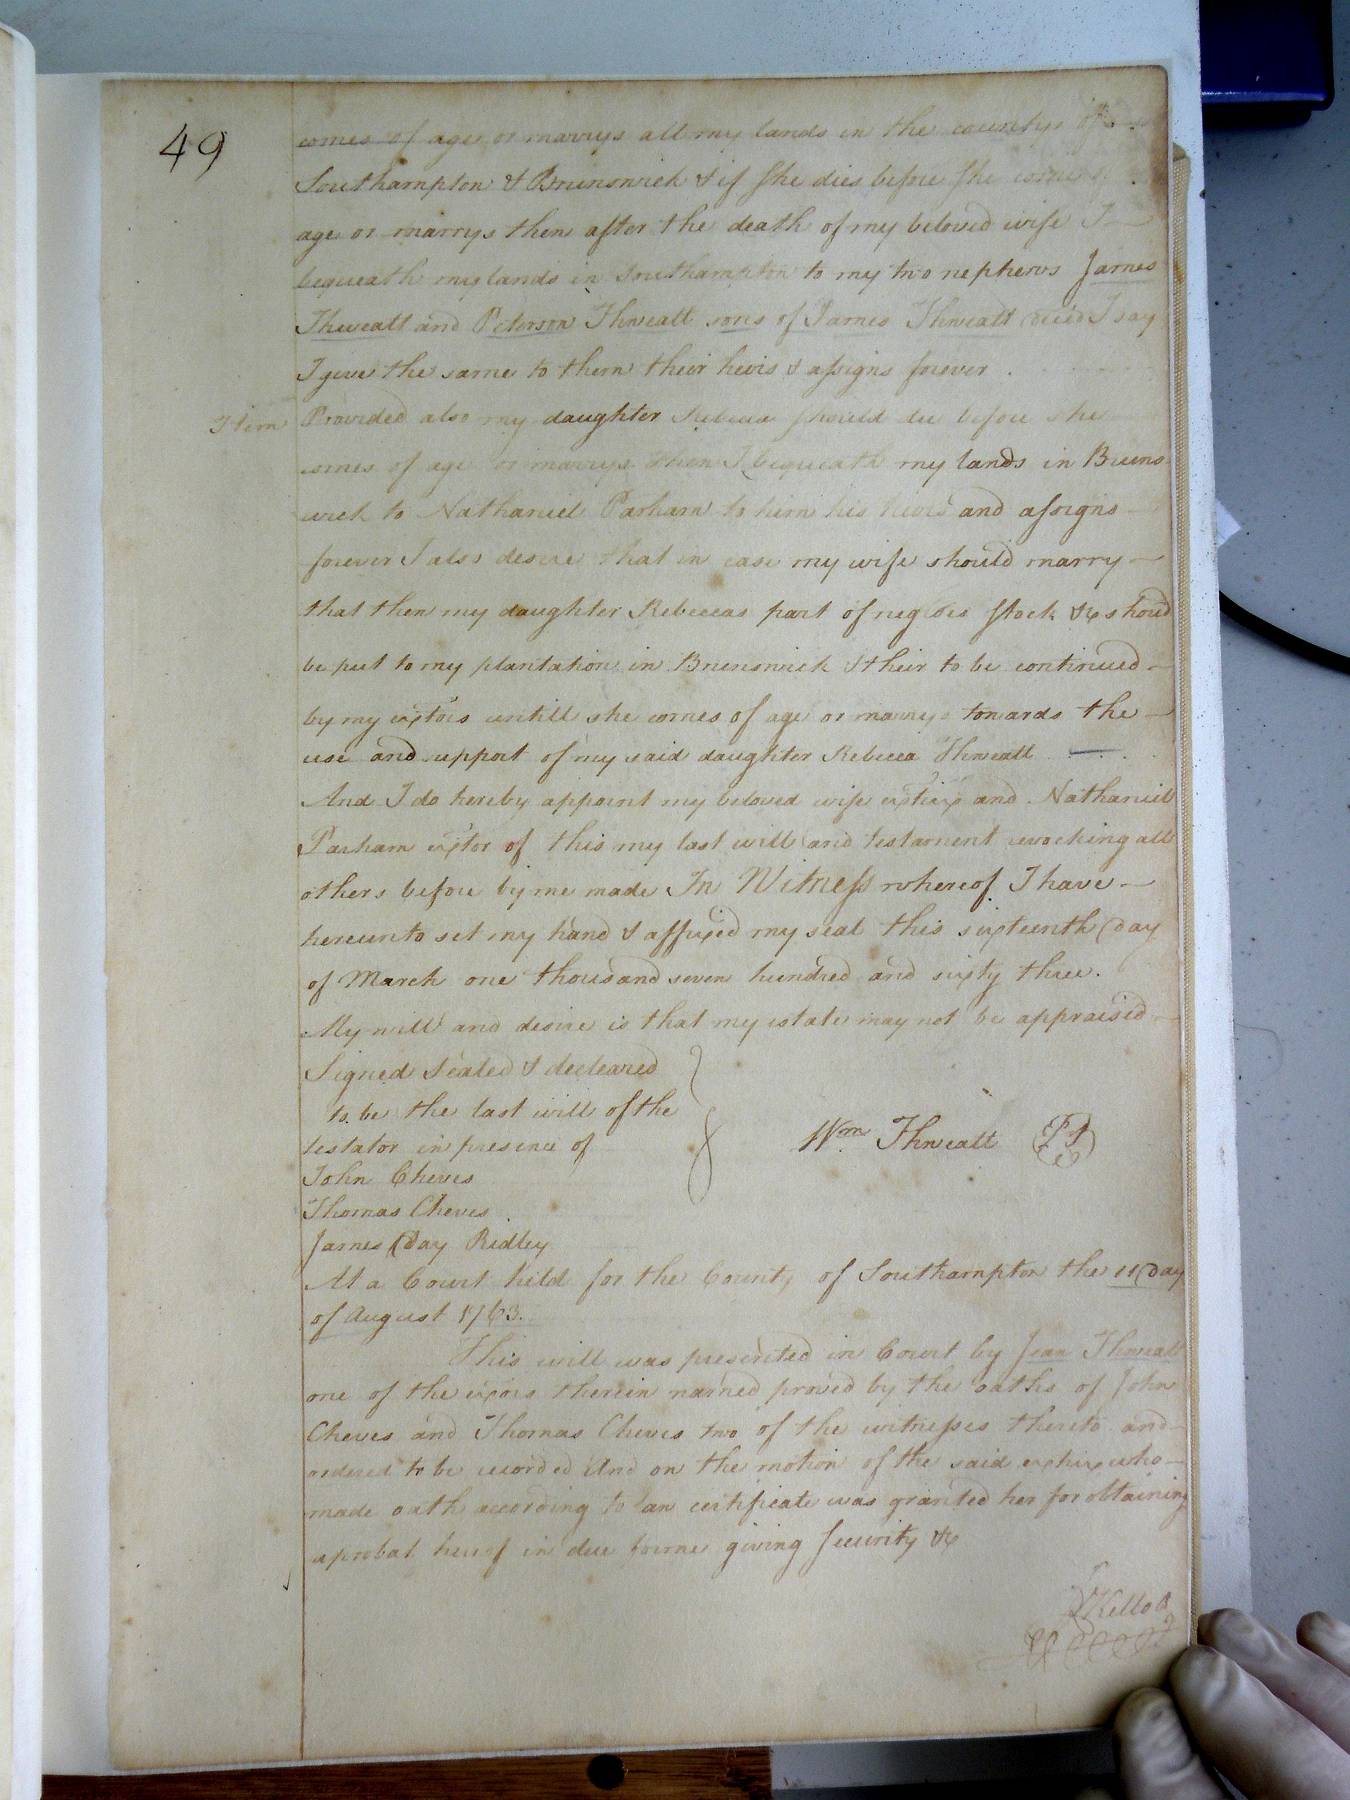 49
comes of age or marrys all my lands in the countys of
Southampton & Brunswick & if she dies before she comes of
age or marrys then after the death of my beloved wife I
bequeath my lands in Southampton to my two nephews James
Thweatt and Peterson Thweatt sons of James Thweatt decd I say
I give the same to them their heirs & assigns forever .
Item Provided also my daughter Rebecca should die before she
comes of age or marrys then I bequeath my lands in Bruns
wick to Nathaniel Parham to him his heirs and assigns
forever I also desire that in case my wife should marry
that then my daughter Rebeccas part of negroes stock &c shoud
be put to my plantation in Brunswick & their to be continued
by my extors untill she comes of age or marrys towards the
use and support of my said daughter Rebecca Thweatt
And I do hereby appoint my beloved wife extrix and Nathaniel
Parham extor of this my last will and testament revocking all
others before by me made In Witness whereof I have
hereunto set my hand & affixed my seal this sixteenth day
of March one thousand seven hundred and sixty three.
My will and desire is that my estate may not be appraised
Signed sealed & decleared
to be the last will of the
testator in presence of
Wm Thweatt
John Cheves
Thomas Cheves
James Day Ridley
At a Court held for the County of Southampton the 11 day
of August 1763.
This will was presented in Court by Jean Thweatt
one of the exors therein named proved by the oaths of John
Cheves and Thomas Cheves two of the witnesses thereto and
ordered to be recorded And on the motion of the said extrix who
made oath according to law certificate was granted her for obtaining
a probat hereof in due forme giving security &c
Kello